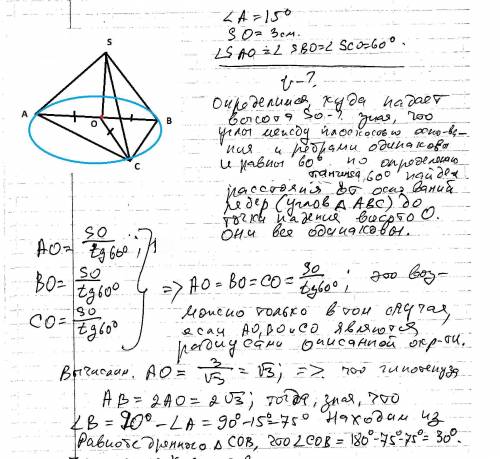 ∠A=15°
SO=3см.
∠SAO=∠SBO=∠SCO=60°.
V-?
S
A
O
B
C
Определимся, куда падает
высота SO-? зная, что
углы между плоскостью осно-ва-
ния и ребрами одинаковы
и равны 60° по определению
тангенса 60° найдем
расстояния от оснований
ребер (углов △ABC) до
точки падения высоты O.
Они все одинаковы.
AO=SO/tg60°;
BO=SO/tg60°
CO=SO/tg60°
=> AO=BO=CO=SO/tg60°; это воз-
можно только в том случае,
если AO, BO и CO являются
радиусами описанной окр-ти.
Вычислим. AO=3/√3=√3; => что гипотенуза
AB=2AO=2√3; тогда, зная, что
∠B=90°-∠A=90°-15°=75° находим из
Равнобедренного △COB, что ∠COB=180°-75°-75°=30°.